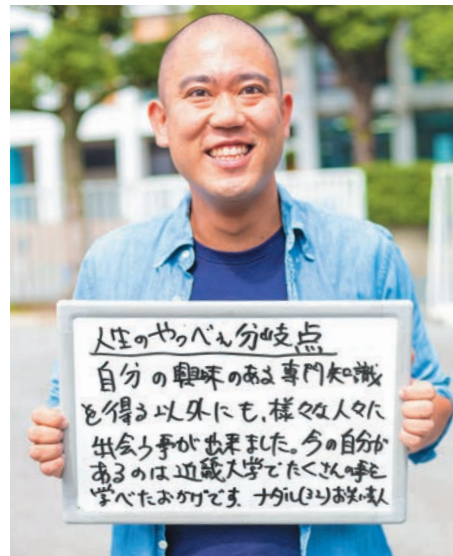 人生のやっべぇ分岐点
自分の興味のある専門知識
を得る以外にも、様々な人々に
出会う事が出来ました。今の自分が
あるのは近畿大学でたくさんの事を
学べたおかげです。ナダル(32)お笑い芸人